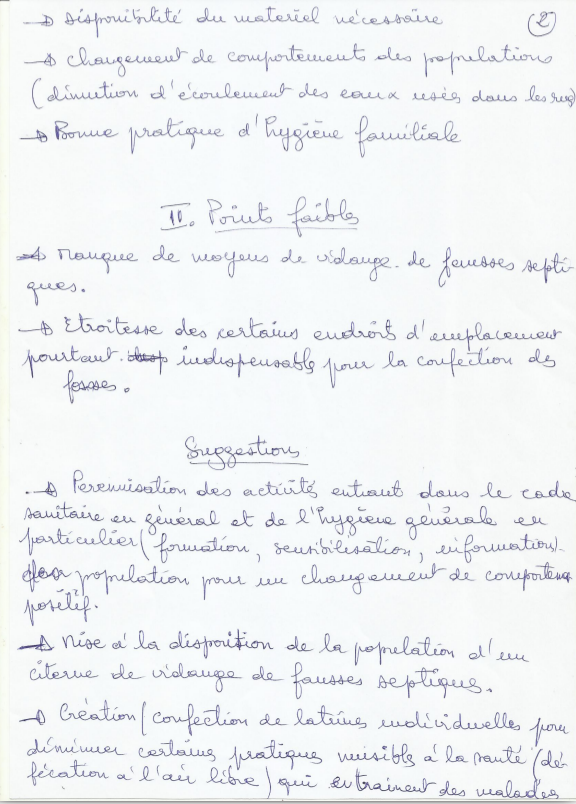 → disponibilité du materiel nécessaire
2
→ changement de comportements des populations
(dimution d'écoulement des eaux usées dans les rues)
→ Bonne pratique d'hygiène familiale
II. Points faibles
→ Manque de moyens de vidange de fausses septi-
ques.
→ Etroitesse des certains endroits d'emplacement
pourtant indispensable pour la confection des
fosses.
Suggestions
→ Perennisation des activités entrant dans le cadre
sanitaire en général et de l'hygiène générale en
particulier (formation, sensibilisation, information)
population pour un changement de comportement
positif.
→ Mise à la disposition de la population d'un
citerne de vidange de fausses septiques.
→ Création/confection de latrines individuelles pour
diminuer certains pratiques nuisible à la santé (dé-
fécation à l'air libre) qui entrainent des maladies